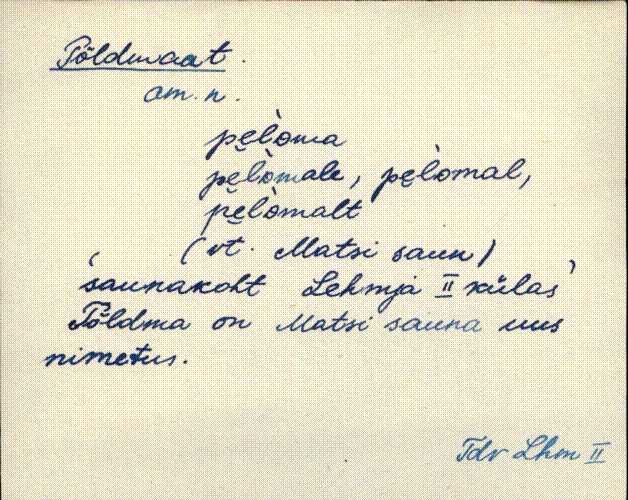 Põldmaat.
om. n.
pe̮l̀oma
pe̮l̀omale, pe̮l̀omal,
pe̮l̀omalt
(vt. Matsi saun)
'saunakoht Lehmja II külas'
Põldma on Matsi sauna uus
nimetus.
Tdr Lhm II